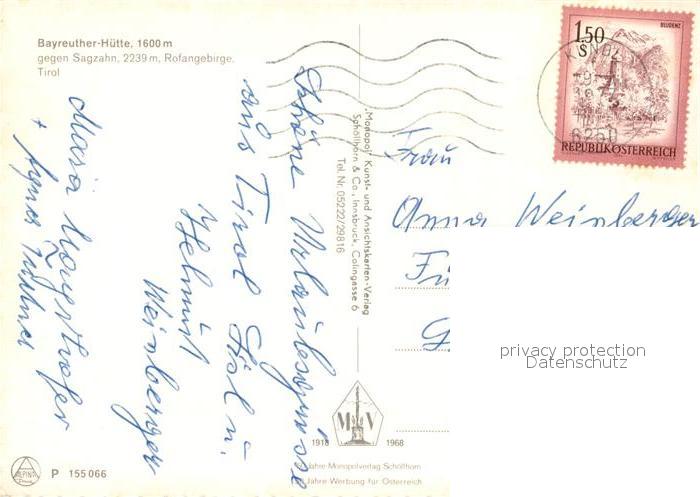 Bayreuther-Hütte, 1600 m
gegen Sagzahn, 2239 m, Rofangebirge,
Tirol
Schöne Urlaubsgrüsse
aus Tirol
Helmut
Weinberger
Maria
+ Agnes
"Monopol" Kunst- und Ansichtskarten-Verlag
Schöllhorn & Co., Innsbruck, Colingasse 6
Tel. Nr. 05222/29816
BLUDENZ
1.50
S
REPUBLIK ÖSTERREICH
KUNDL
6250
Frau
Anna Weinberger
privacy protection
Datenschutz
M V
1918 1968
Jahre Monopolverlag Schöllhorn
Jahre Werbung für Österreich
ALPINA
P 155 066